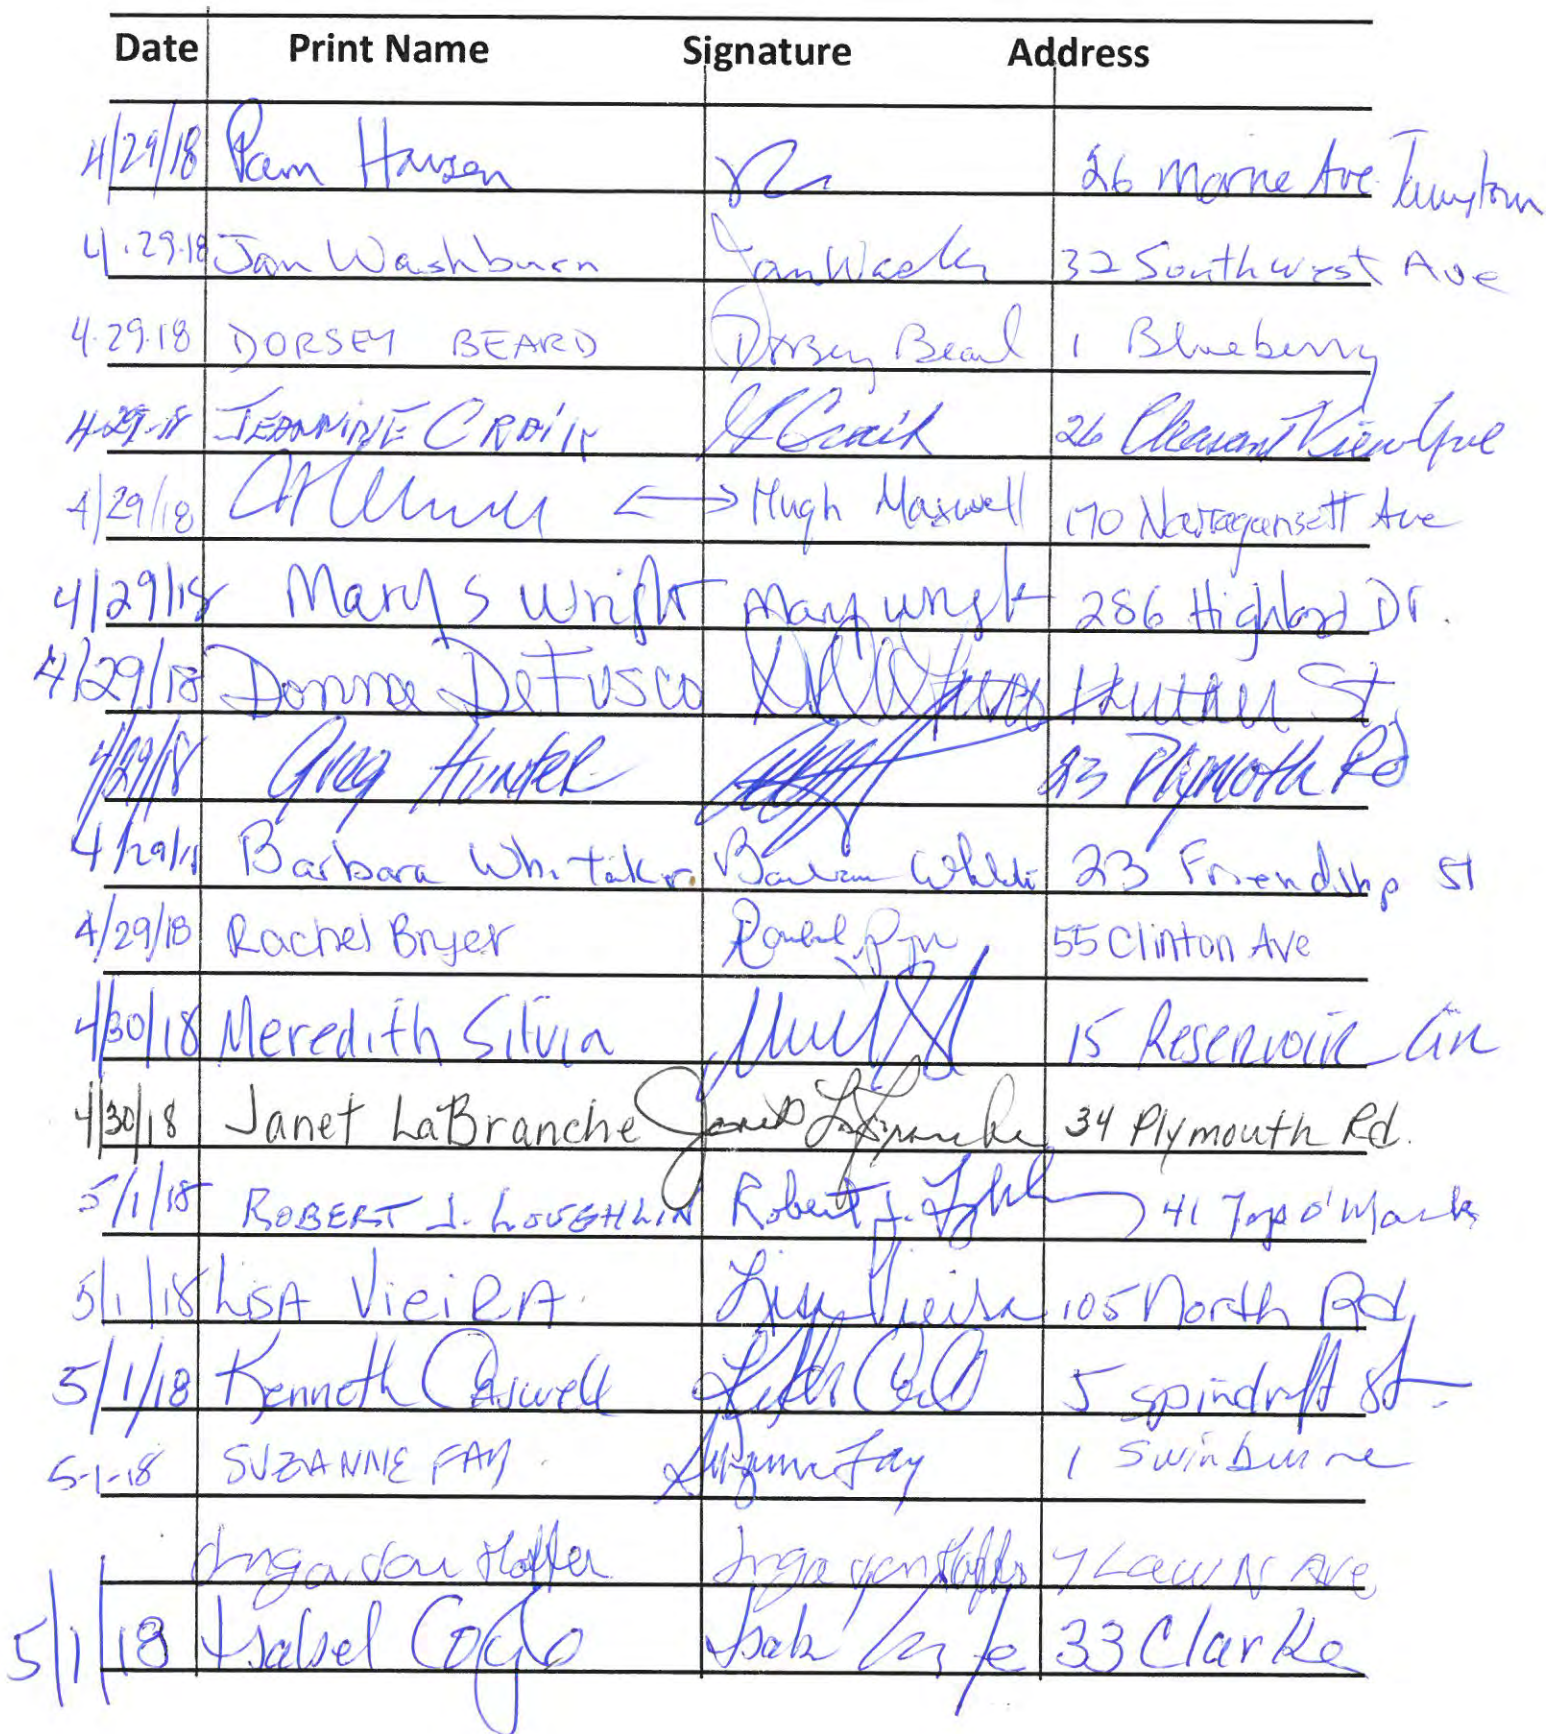 Date Print Name Signature Address
4/29/18 Pam Hansen 26 Marine Ave
4.29.18 Jan Washburn 32 Southwest Ave
4.29.18 DORSEY BEARD Dorsey Beard 1 Blueberry
4-29-18 JEANNINE CRAIK Craik 26 Pleasant View Ave
4/29/18 Hugh Maxwell 170 Narragansett Ave
4/29/18 Mary S Wright Mary Wright 286 Highland Dr.
4/29/18 Donna DeFusco Luther St
4/29/18 Greg Hunter 23 Plymouth Rd
4/29/18 Barbara Whitaker 23 Friendship St
4/29/18 Rachel Bryer 55 Clinton Ave
4/30/18 Meredith Silvia 15 Reservoir Cir
4/30/18 Janet LaBranche Janet LaBranche 34 Plymouth Rd.
5/1/18 ROBERT J. LOUGHLIN Robert J. 41 Top o' Mark
5/1/18 LISA VIEIRA. Lisa Vieira 105 North Rd
5/1/18 Kenneth Caswell 5 Spindrift St.
5-1-18 SUZANNE FAY. Suzanne Fay 1 Swinburne
Inga von Hoffer 7 Lawn Ave
5/1/18 Isabel 33 Clarke